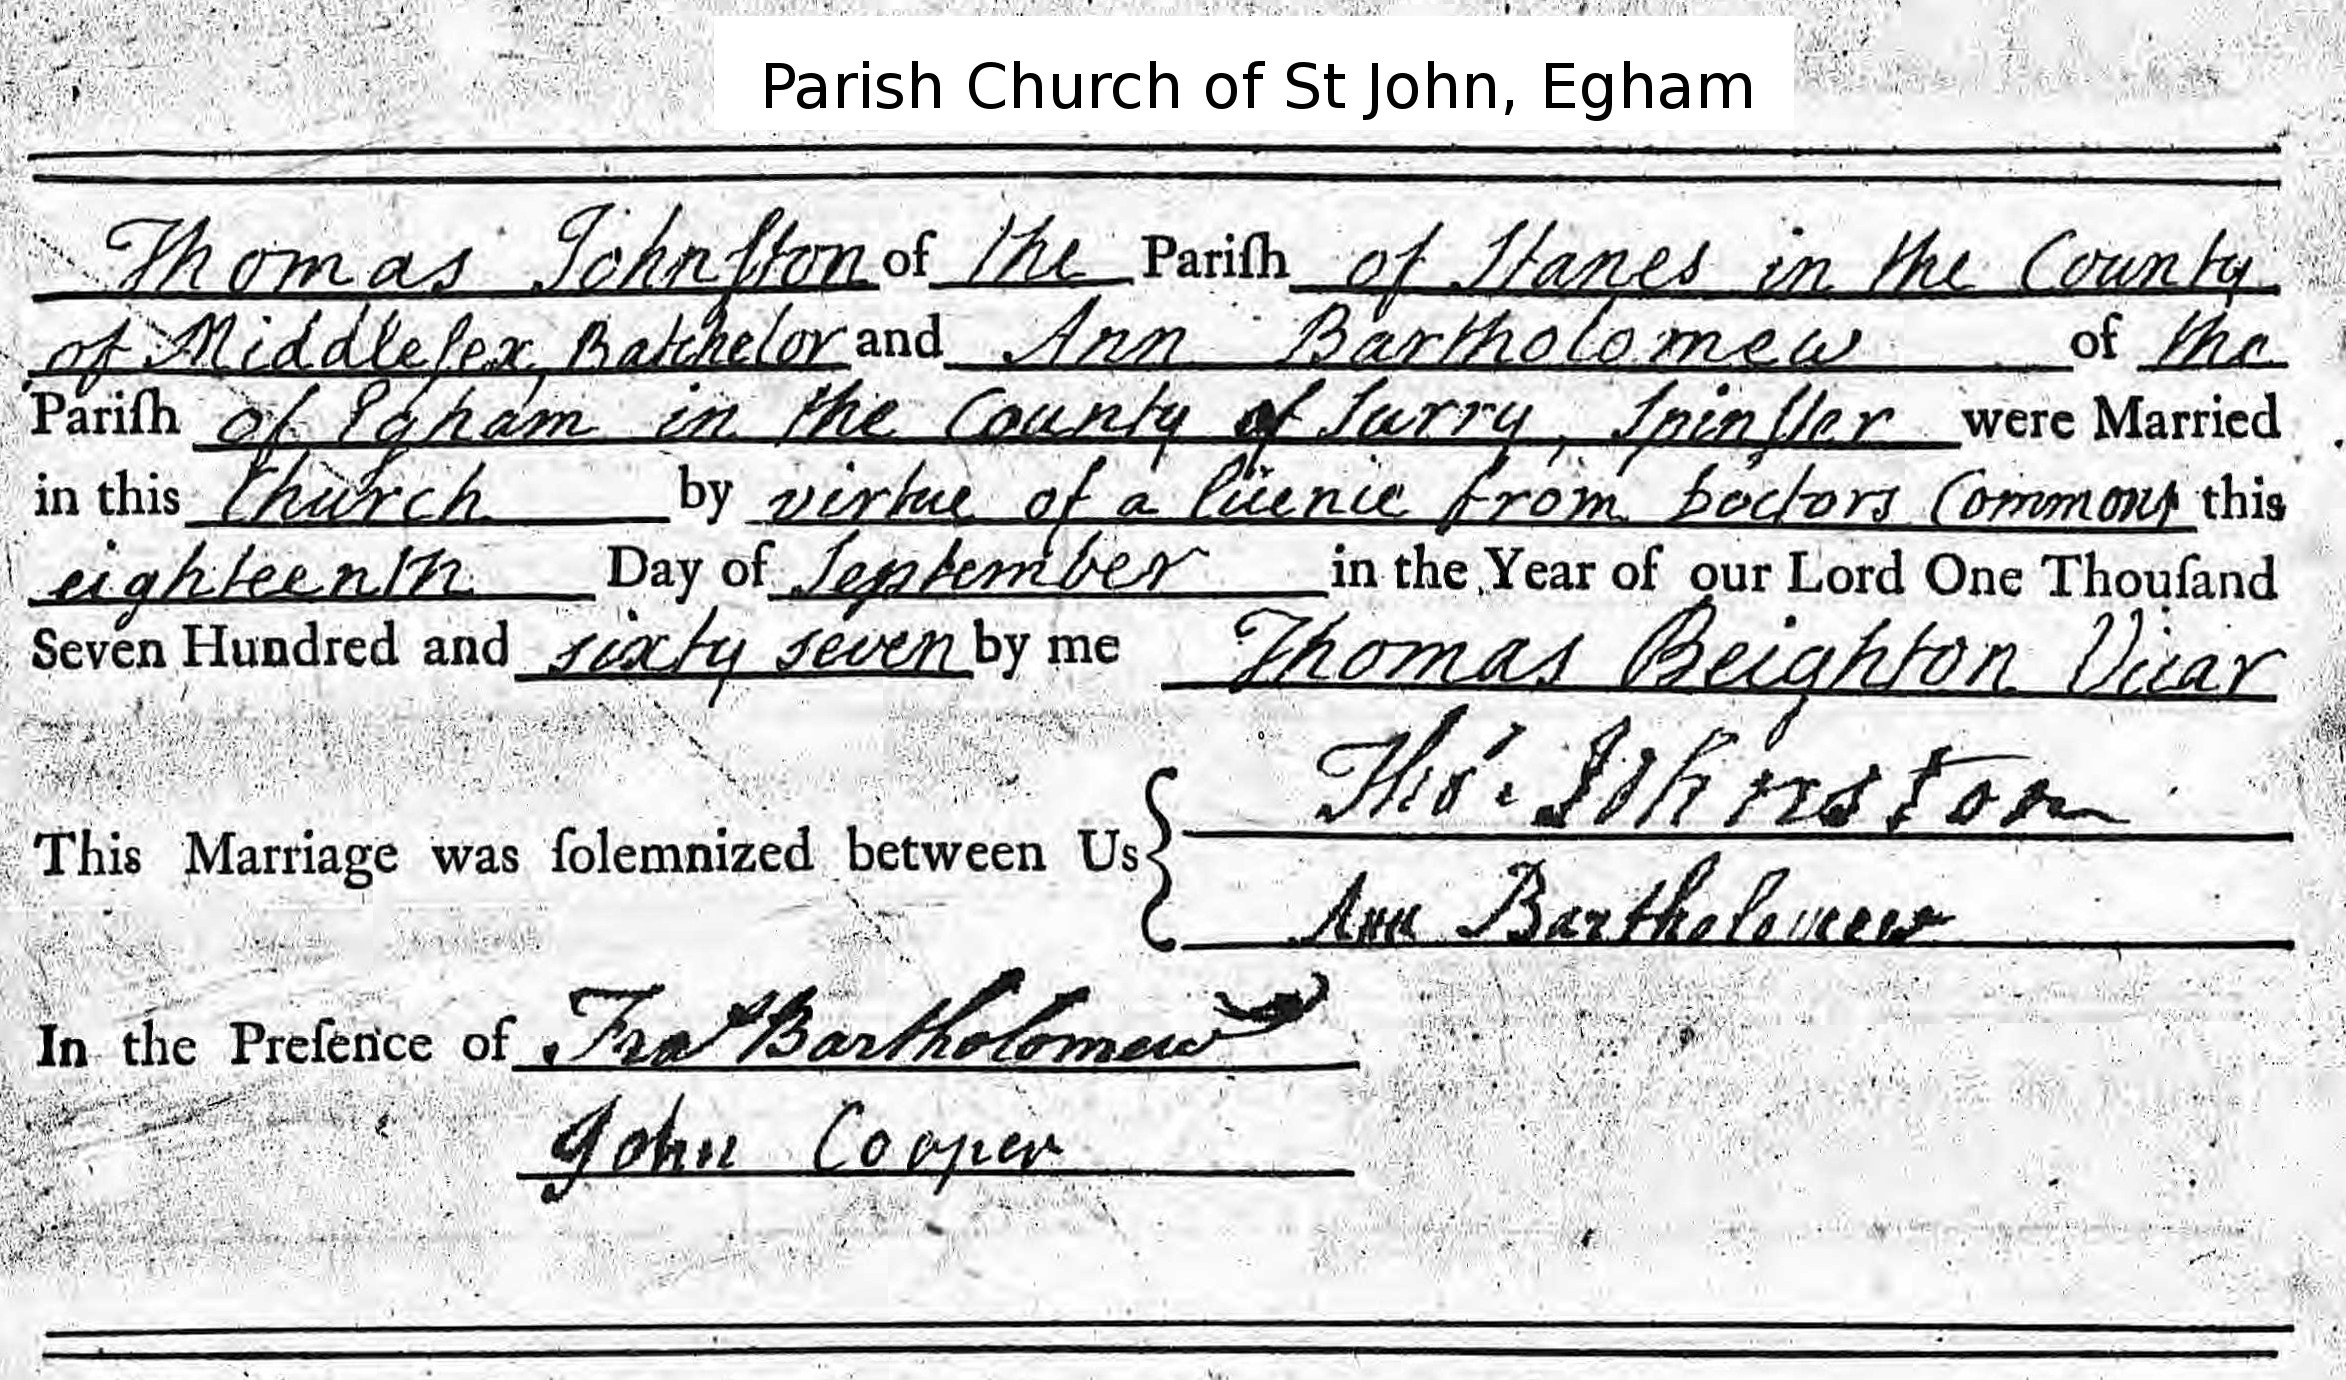 Parish Church of St John, Egham
Thomas Johnſton of the Pariſh of Stanes in the County
of Middleſex, Batchelor and Ann Bartholomew of the
Pariſh of Egham in the County of Surry, Spinſter were Married
in this Church by virtue of a licence from Doctors Commons this
eighteenth Day of September in the Year of our Lord One Thouſand
Seven Hundred and sixty seven by me Thomas Beighton Vicar
This Marriage was ſolemnized between Us { Thos. Johnston
Ann Bartholomew
In the Preſence of Fras Bartholomew
John Cooper